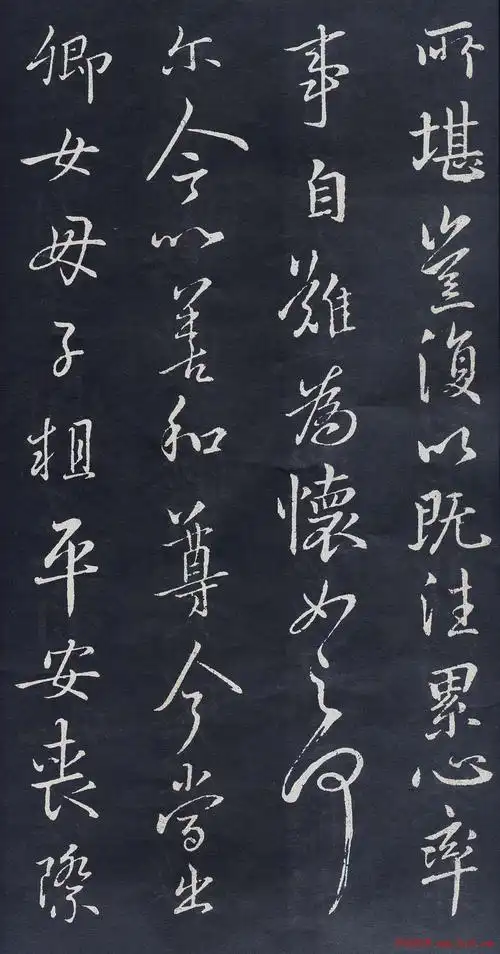 所堪豈復以既往累心率
事自難為懷如之何
尔今以善和尊今當出
卿女母子粗平安喪際